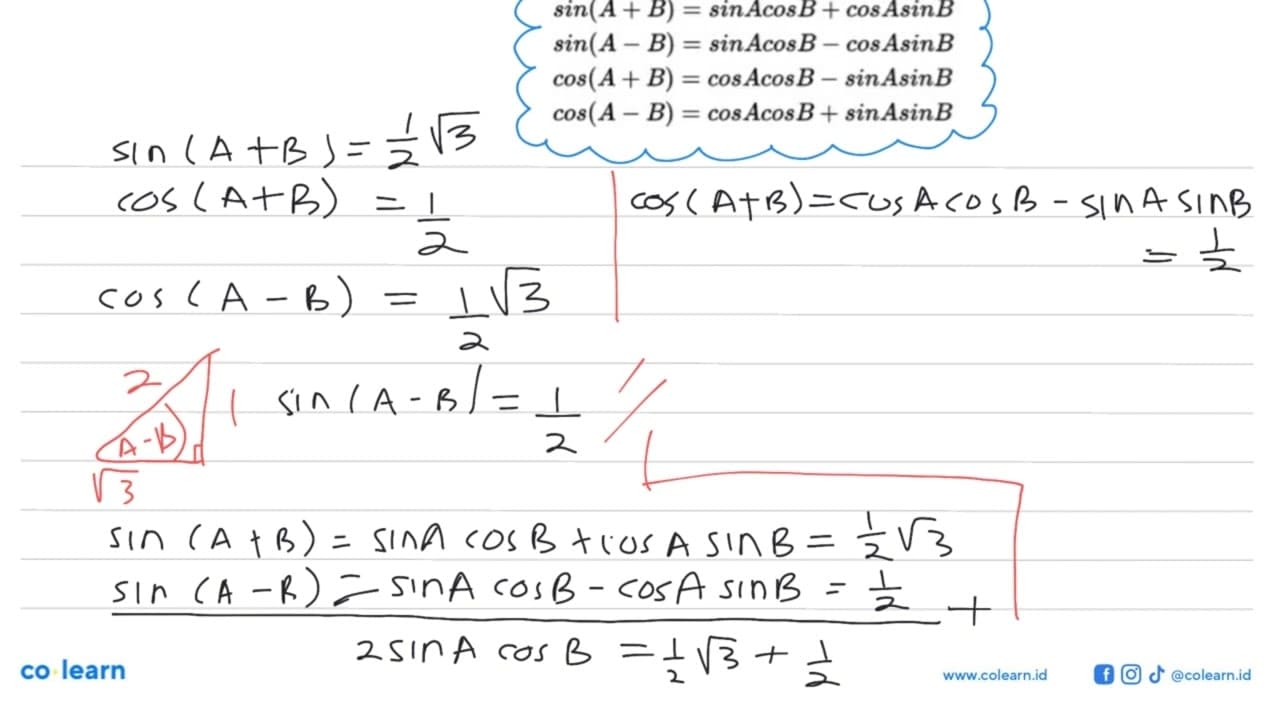 sin(A + B) = sinAcosB + cosAsinB
sin(A − B) = sinAcosB − cosAsinB
cos(A + B) = cosAcosB − sinAsinB
cos(A − B) = cosAcosB + sinAsinB
sin(A+B) = 1/2 √3
cos(A+B) = 1/2
cos(A+B) = cosA cosB - sinA sinB
= 1/2
cos(A-B) = 1/2 √3
2
1
A-B
√3
sin(A-B) = 1/2
sin(A+B) = sinA cosB + cosA sinB = 1/2 √3
sin(A-B) = sinA cosB - cosA sinB = 1/2 +
2 sinA cosB = 1/2 √3 + 1/2
co learn
www.colearn.id
@colearn.id